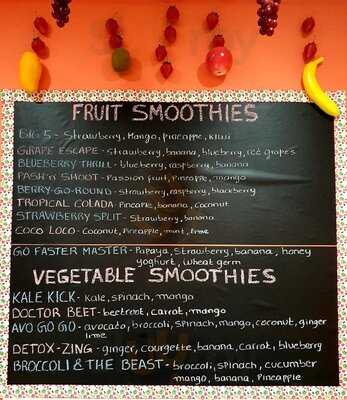 FRUIT SMOOTHIES
BIG 5 - Strawberry, Mango, pineapple, kiwi
GRAPE ESCAPE - Strawberry, banana, blueberry, red grape's
BLUEBERRY THRILL - blueberry, raspberry, banana
PASH 'n' SHOOT - Passion fruit, Pineapple, mango
BERRY-GO-ROUND - Strawberry, raspberry, blackberry
TROPICAL COLADA - Pineapple, banana, coconut
STRAWBERRY SPLIT - Strawberry, banana
COCO LOCO - Coconut, Pineapple, mint, lime
GO FASTER MASTER - Papaya, Strawberry, banana, honey
yoghurt, wheat germ
VEGETABLE SMOOTHIES
KALE KICK - Kale, spinach, mango
DOCTOR BEET - beetroot, carrot, mango
AVO GO GO - avocado, broccoli, spinach, mango, coconut, ginger
lime
DETOX-ZING - ginger, courgette, banana, carrot, blueberry
BROCCOLI & THE BEAST - broccoli, spinach, cucumber
mango, banana, Pineapple